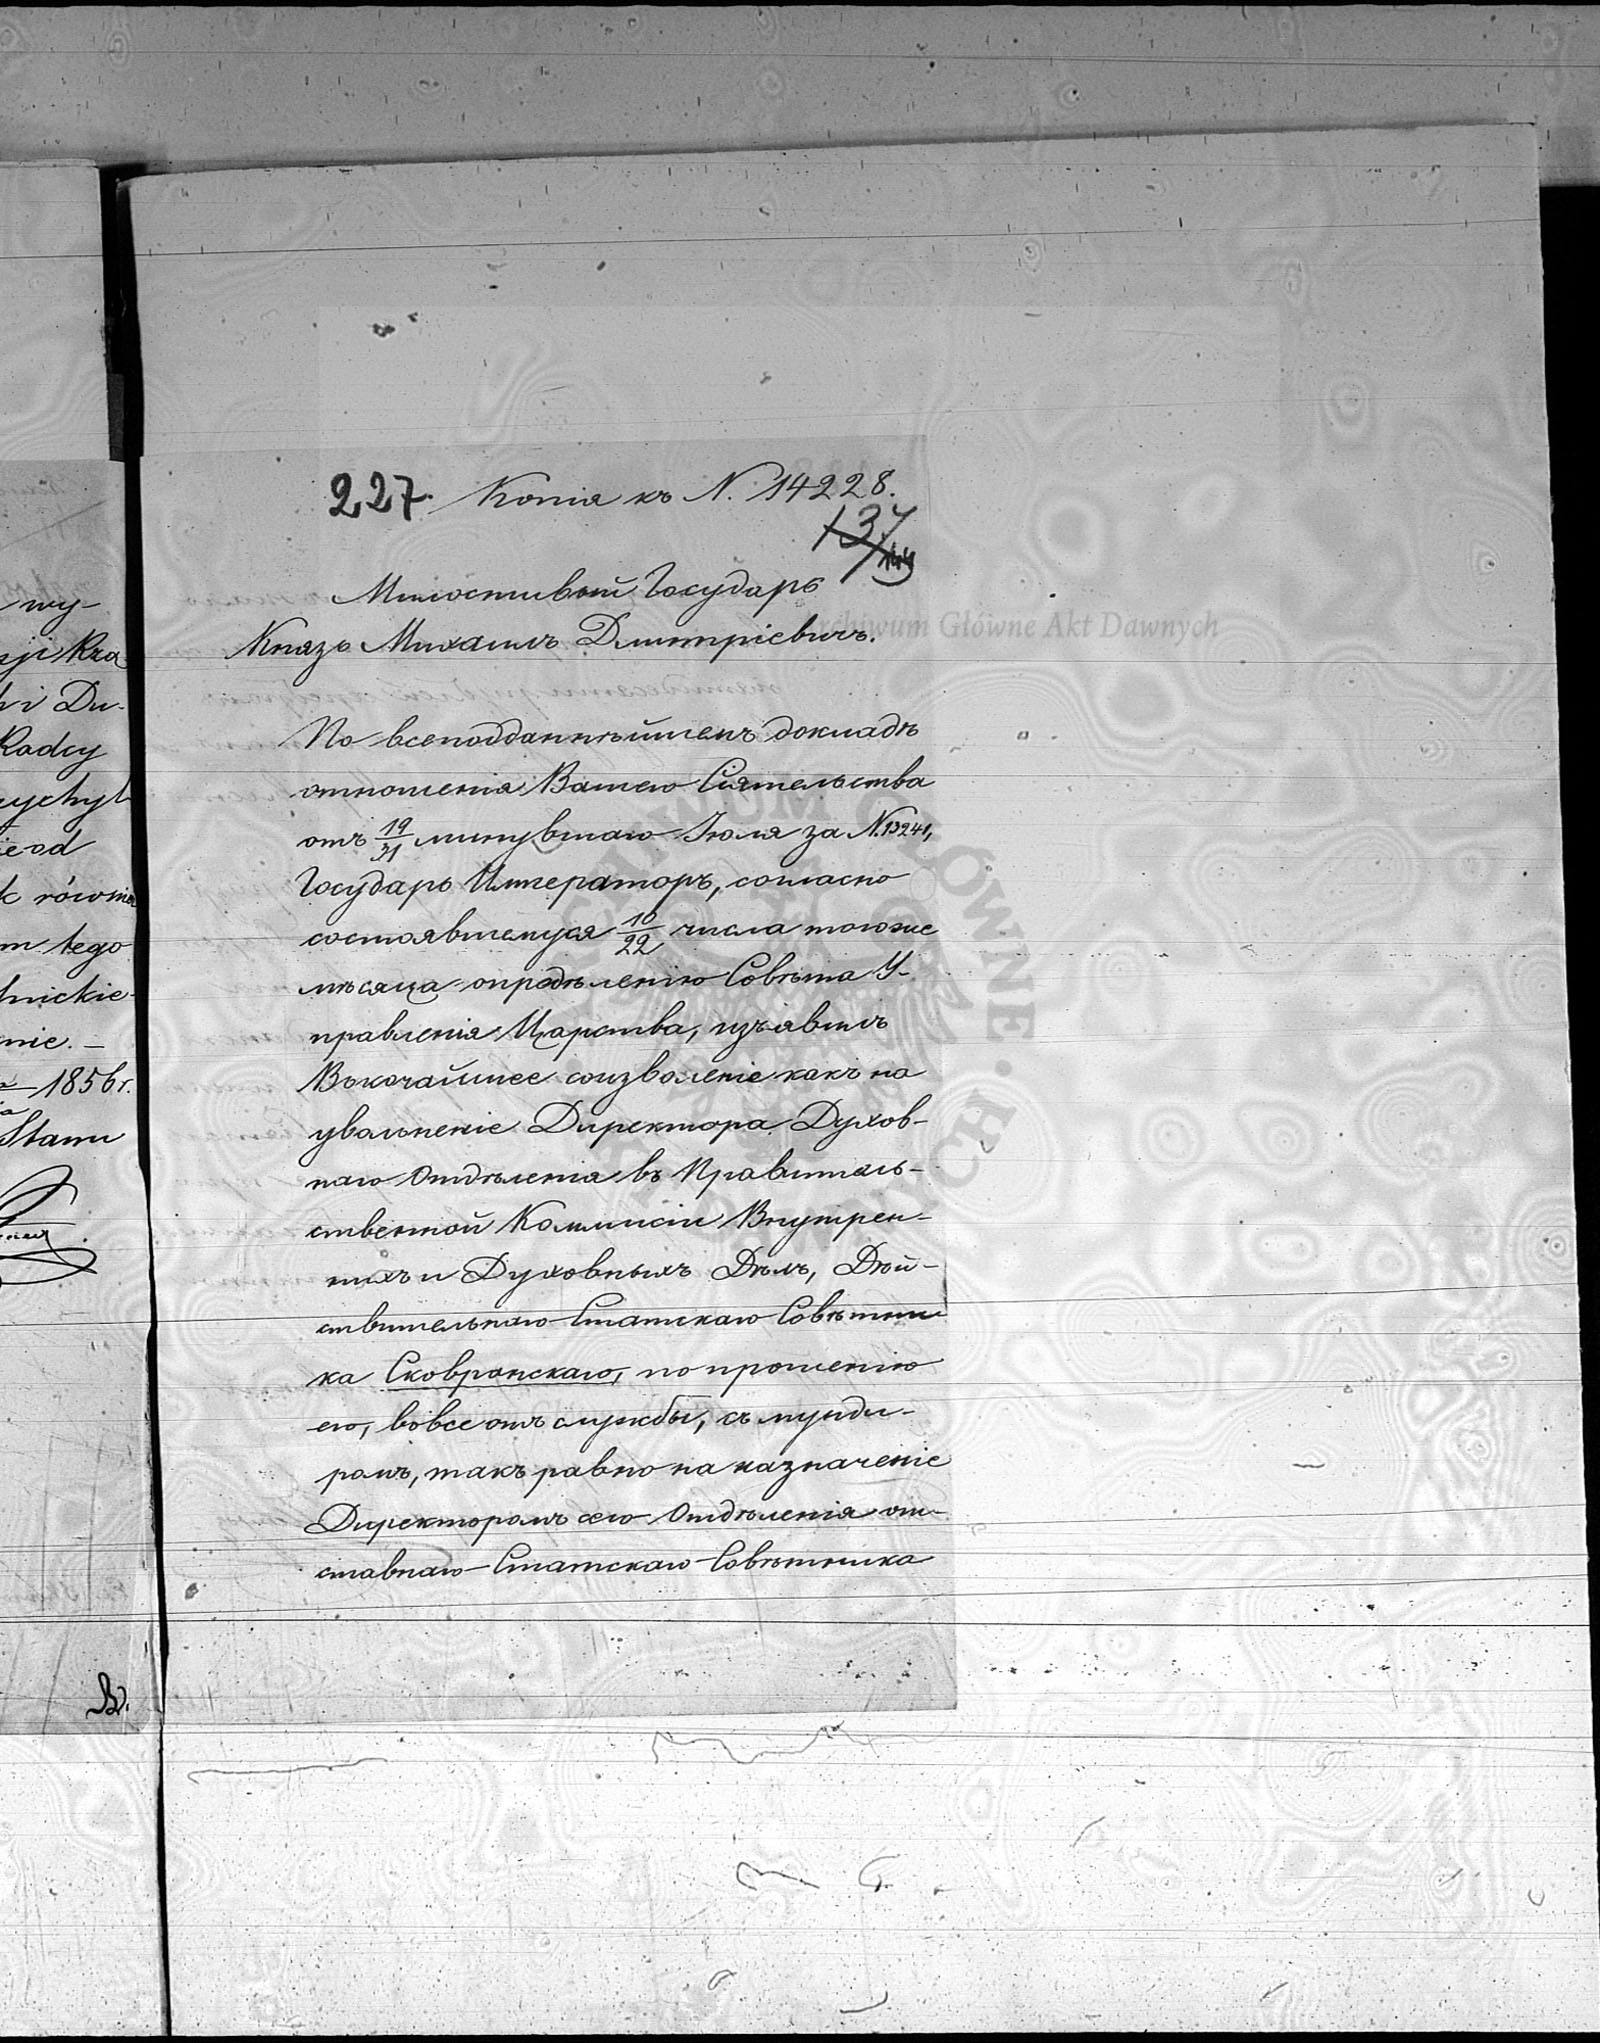 wy-
ji Rzą
i Du-
Radcy
rychył
ie od
k równie
m tego
lnickie-
nie. —
1856 r.
Stanu
B.
227. Копія къ N. 14228.
137
Милостивый Государь
Князь Михаилъ Дмитріевичъ.
По всеподданнѣйшемъ докладѣ
отношенія Вашего Сіятельства
отъ 19/31 минувшаго Іюля за N. 13241,
Государь Императоръ, согласно
состоявшемуся 10/22 числа тогоже
мѣсяца опредѣленію Совѣта У-
правленія Царства, изъявилъ
Высочайшее соизволеніе какъ на
увольненіе Директора Духов-
наго Отдѣленія въ Правитель-
ственной Коммисіи Внутрен-
нихъ и Духовныхъ Дѣлъ, Дѣй-
ствительнаго Статскаго Совѣтни
ка Сковронскаго, по прошенію
его, вовсе отъ службы, съ мунди-
ромъ, такъ равно на назначеніе
Директоромъ сего Отдѣленія от-
ставнаго Статскаго Совѣтника
Archiwum Główne Akt Dawnych
ARCHIWUM GŁÓWNE AKT DAWNYCH